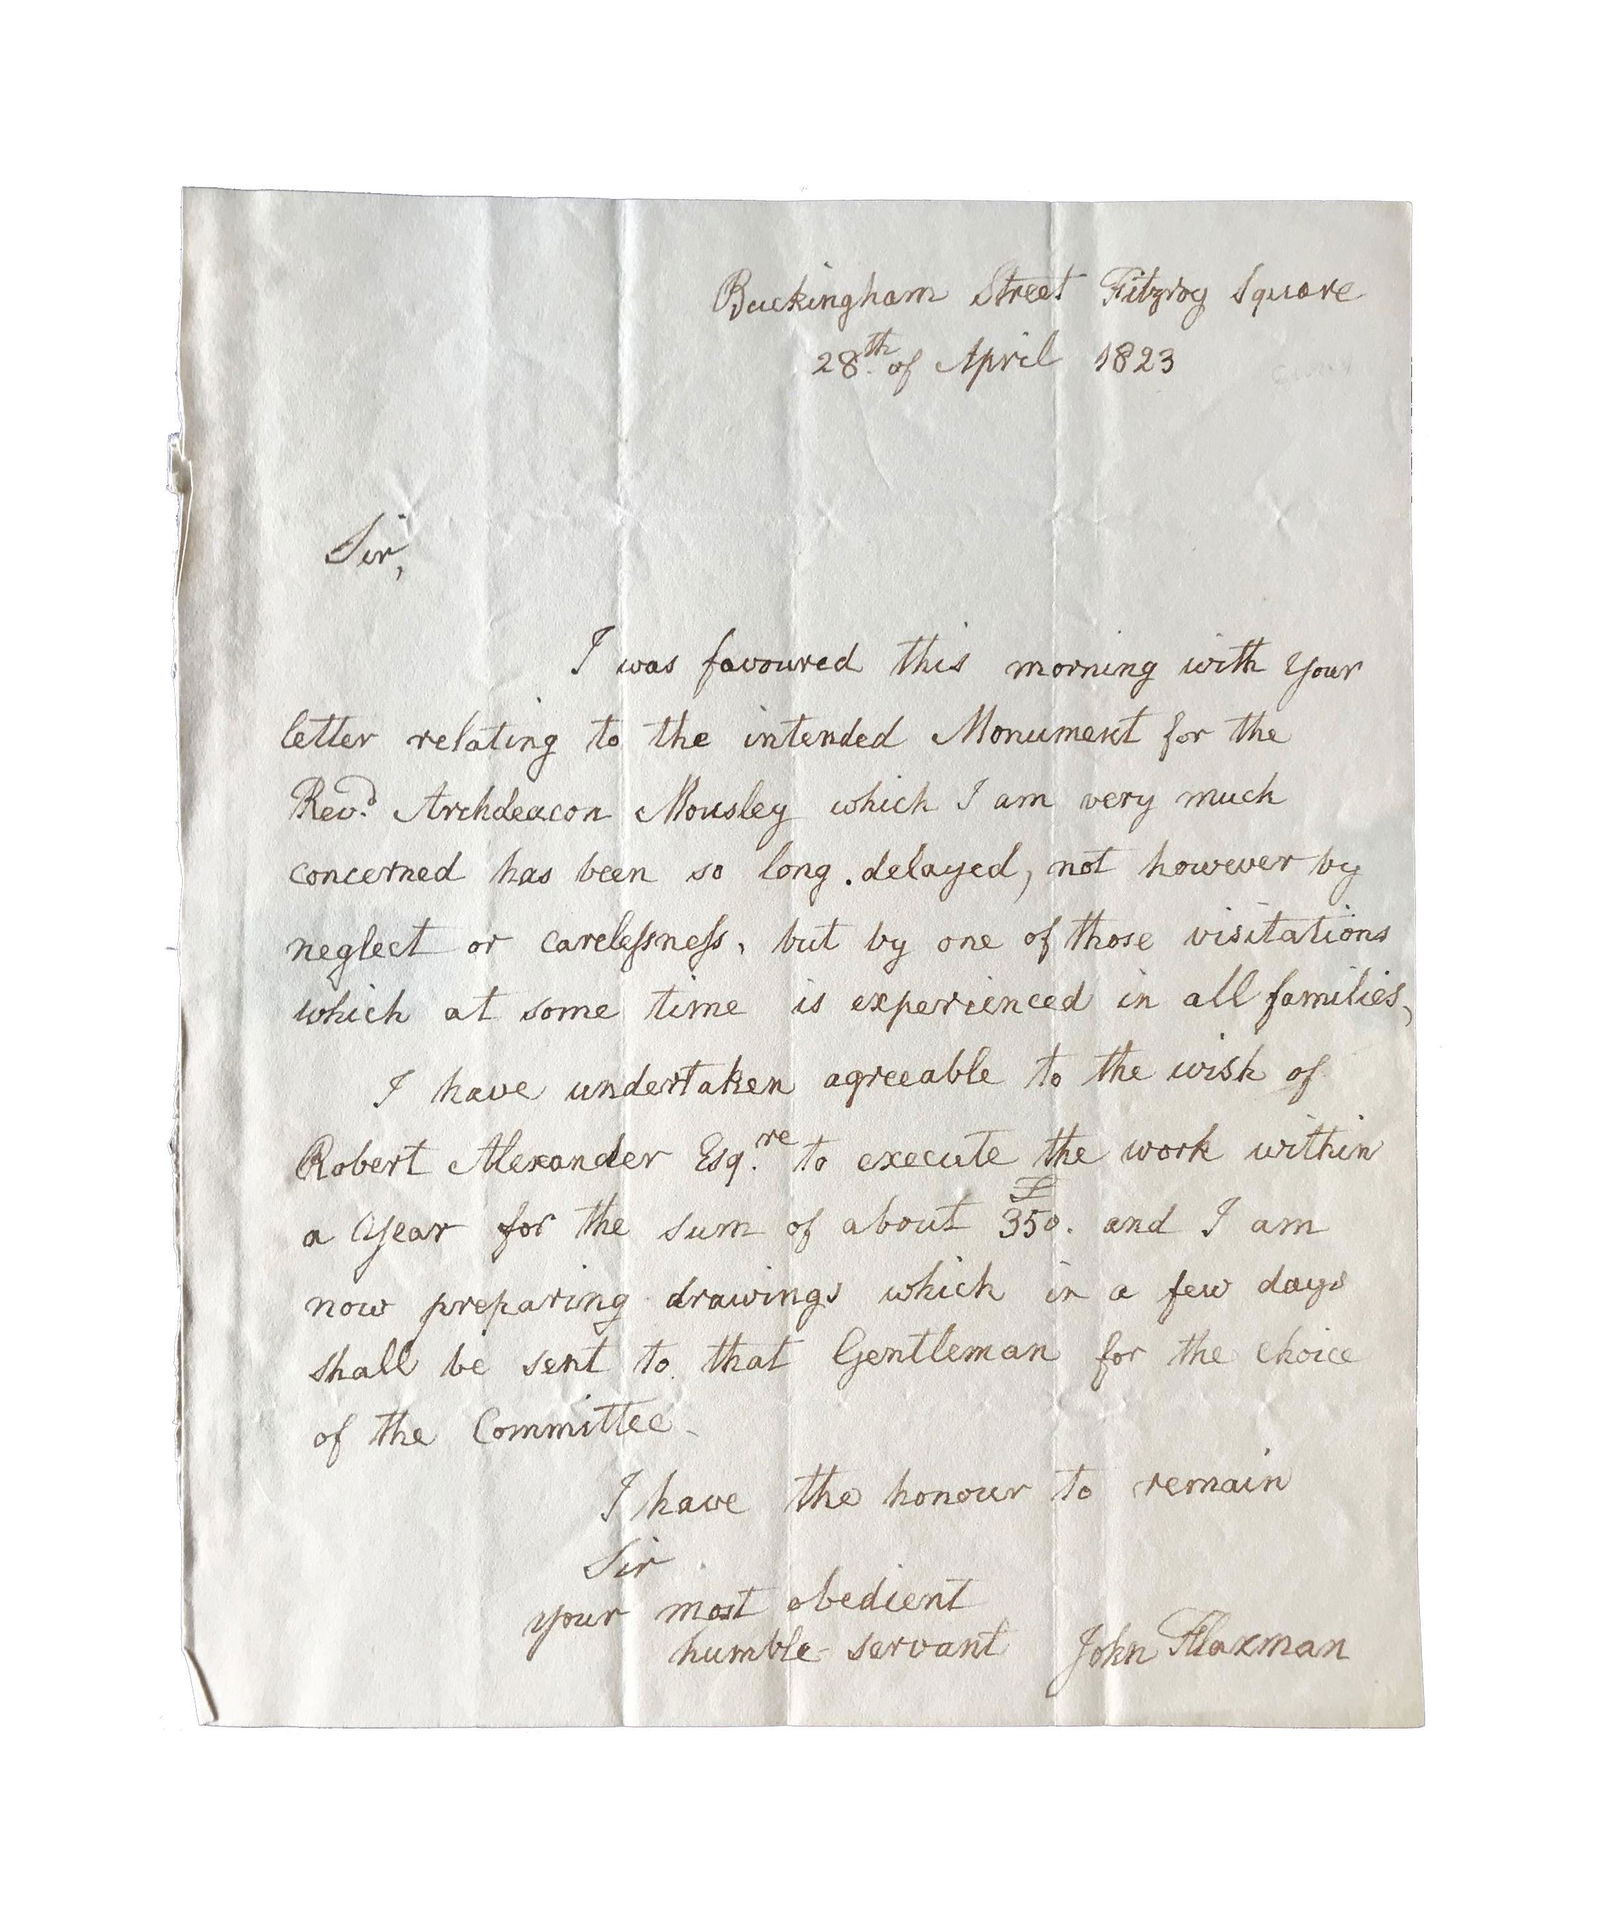 Buckingham Street Fitzroy Square
28th. of April 1823
Sir,
I was favoured this morning with your
letter relating to the intended Monument for the
Revd. Archdeacon Mousley which I am very much
concerned has been so long delayed, not however by
neglect or careleſsneſs, but by one of those visitations
which at some time is experienced in all families,
I have undertaken agreeable to the wish of
Robert Alexander Esq.re to execute the work within
a Year for the sum of about £350. and I am
now preparing drawings which in a few days
shall be sent to that Gentleman for the choice
of the Committee.
I have the honour to remain
Sir
your most obedient
humble servant John Flaxman